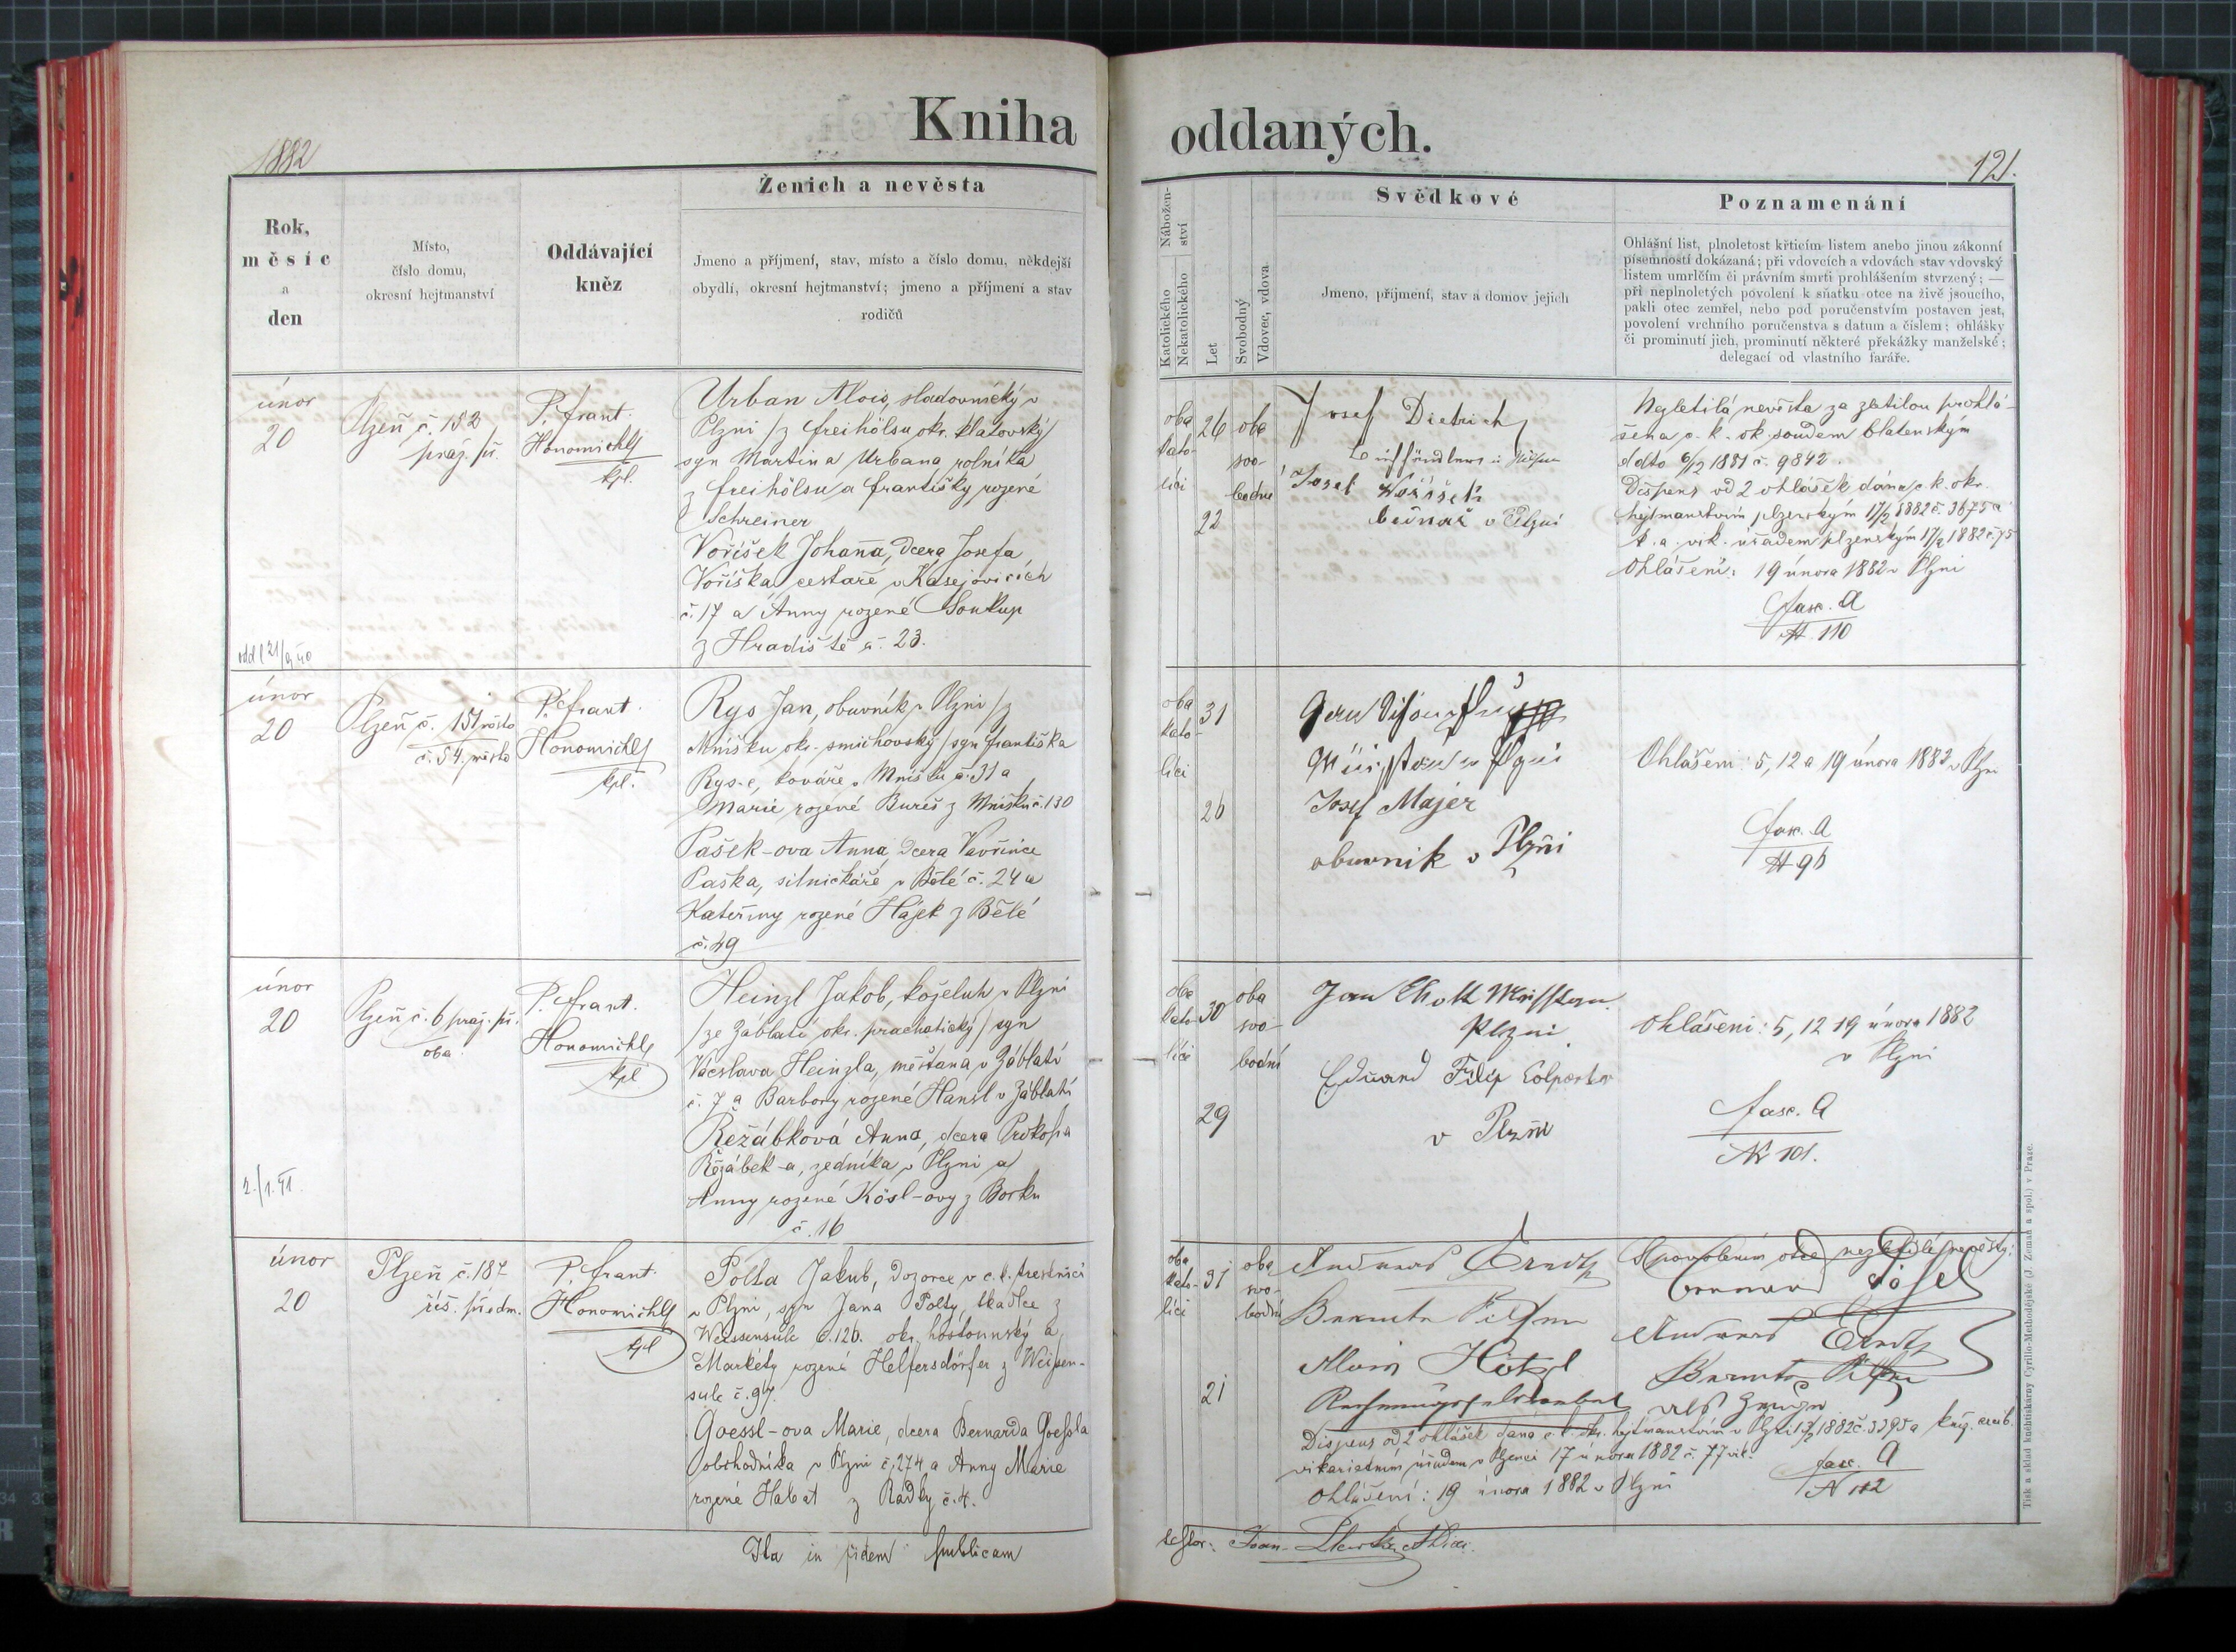 Kniha oddaných.
1882
121.
Rok,
měsíc
a
den
Místo,
číslo domu,
okresní hejtmanství
Oddávající
kněz
Ženich a nevěsta
Jmeno a příjmení, stav, místo a číslo domu, někdejší
obydlí, okresní hejtmanství; jmeno a příjmení a stav
rodičů
Nábožen-
ství
Katolického
Nekatolického
Let
Svobodný
Vdovec, vdova
Svědkové
Jmeno, příjmení, stav a domov jejich
Poznamenání
Ohlášní list, plnoletost křticím listem anebo jinou zákonní
písemností dokázaná; při vdovcích a vdovách stav vdovský
listem umrlčím či právním smrti prohlášením stvrzený; —
při neplnoletých povolení k sňatku otce na živě jsoucího,
pakli otec zemřel, nebo pod poručenstvím postaven jest,
povolení vrchního poručenstva s datum a číslem; ohlášky
či prominutí jich, prominutí některé překážky manželské;
delegací od vlastního faráře.
únor
20
Plzeň č. 152
praž. př.
P. Frant.
Honomichl
kpl.
Urban Alois, sladovnický v
Plzni /z Freihölsu okr. klatovský/
syn Martina Urbana rolníka
z Freihölsu a Františky rozené
Schreiner
Voříšek Johanna, dcera Josefa
Voříška, cestáře v Kasejovicích
č. 17 a Anny rozené Soukup
z Hradiště č. 23.
oba
kato-
líci
26
22
oba
svo-
bodní
Josef Dietrich
Josef Voříšek
bednář v Plzni
Nezletilá nevěsta za zletilou prohlá-
šena c. k. ok. soudem blatenským
ddto 6/12 1881 č. 9842.
Dispens od 2 ohlášek dána c. k. okr.
hejtmanstvím plzenským 17/2 1882 č. 3675 a
k. a. vik. úřadem plzenským 17/2 1882 č. 75
Ohlášení: 19 února 1882 v Plzni
fasc. A
N 110
únor
20
Plzeň č. 151 město
č. 54. město
P. Frant.
Honomichl
kpl.
Rys Jan, obuvník v Plzni /z
Mníšku okr. smíchovský/ syn Františka
Rys-e, kováře v Mníšku č. 31 a
Marie rozené Bureš z Mníšku č. 130
Pašek-ova Anna, dcera Vavřince
Paška, silničáře v Bělé č. 24 a
Kateřiny rozené Hájek z Bělé
č. 49
oba
kato-
líci
31
26
v Plzni
Josef Majer
obuvnik v Plzni
Ohlášení: 5, 12 a 19 února 1882 v Plzni
fasc. A
N 96
únor
20
Plzeň č. 6 praž. př.
oba
P. Frant.
Honomichl
kpl
Heinzl Jakob, koželuh v Plzni
/ze Záblatí okr. prachatický/ syn
Václava Heinzla, měšťana v Záblatí
č. 7 a Barbory rozené Hansl v Záblatí
Řežábková Anna, dcera Prokopa
Řežábek-a, zedníka v Plzni a
Anny rozené Kösl-ovy z Borku
č. 16
2./1.41.
oba
kato-
líci
30
29
oba
svo-
bodní
Plzni.
Eduard Filip Colporter
v Plzni
Ohlášeni: 5, 12 19 února 1882
v Plzni
fasc. A
Nr 101.
únor
20
Plzeň č. 187
říš. předm.
P. Frant.
Honomichl
kpl
Polta Jakub, dozorce v c. k. trestnici
v Plzni, syn Jana Polty, tkadlce z
Weissensule č. 126. okr. hostounský a
Markéty rozené Helfersdörfer z Weissen-
sule č. 97.
Goessl-ova Marie, dcera Bernarda Goessla
obchodníka v Plzni č. 274 a Anny Marie
rozené Habat z Radky č. 4.
oba
kato-
líci
31
21
oba
svo-
bodní
Andreas Erndtz
Beamte Pilsen
Alois Hötzl
S povolením otce nezletilé nevěsty:
Andreas Erndtz
Beamte Pilsen
als Zeuge
Dispens od 2 ohlášek dána c. k. okr. hejtmanstvím v Plzni 13/2 1882 č. 3395 a
vikariatním úřadem v Plzni 17 února 1882 č. 77 vik.
Ohlášení: 19 února 1882 v Plzni
fasc. A
N 112
Ita in fidem publicam
Tisk a sklad knihtiskárny Cyrillo-Methodějské (J. Zeman a spol.) v Praze.